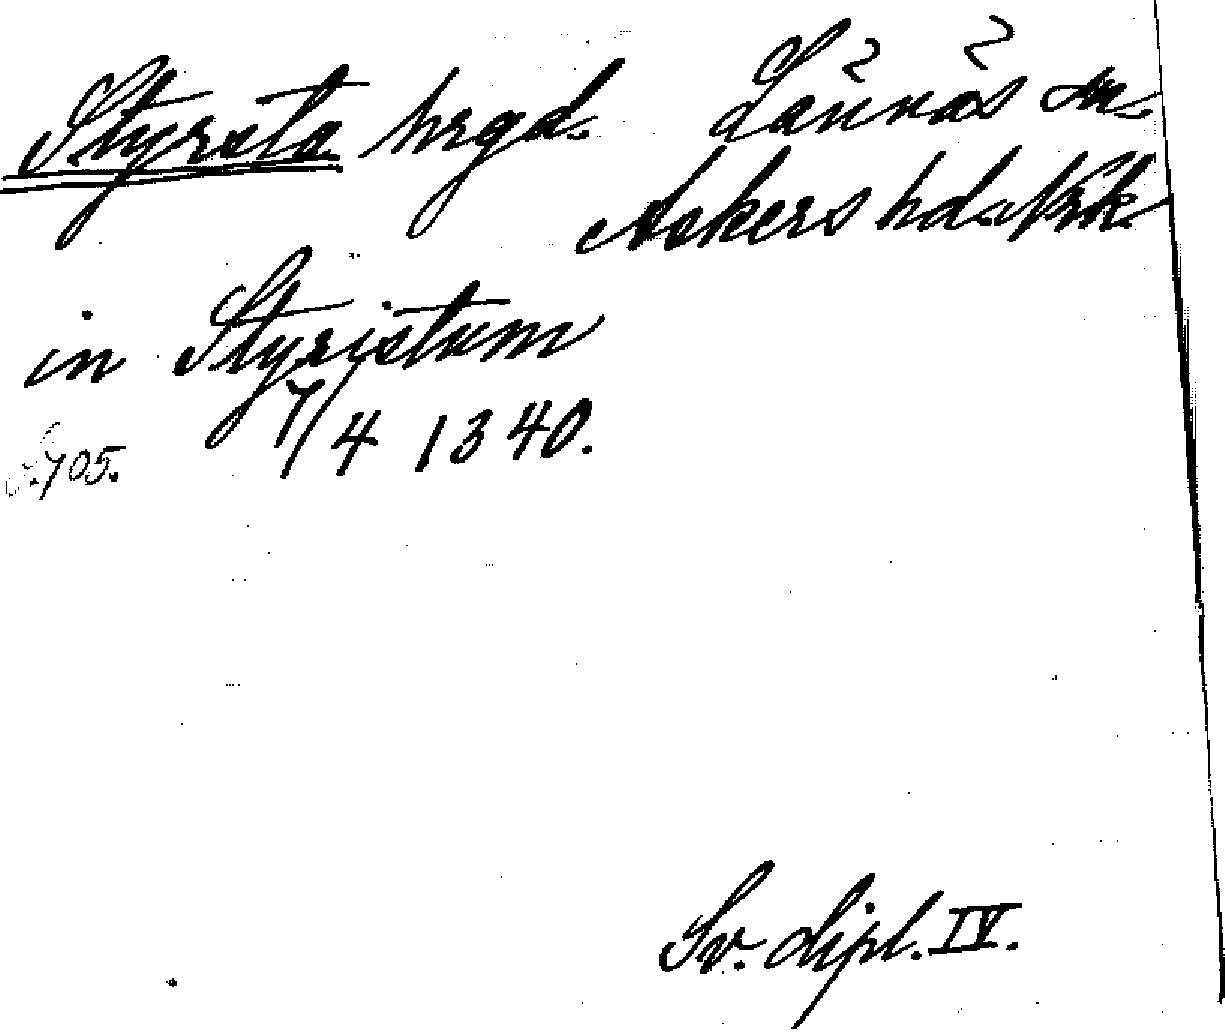 Styrsta hrgd. Lännäs sn.
Askers hd. Nrk.
in Styristum
7/4 1340.
S. 705.
Sv. dipl. IV.